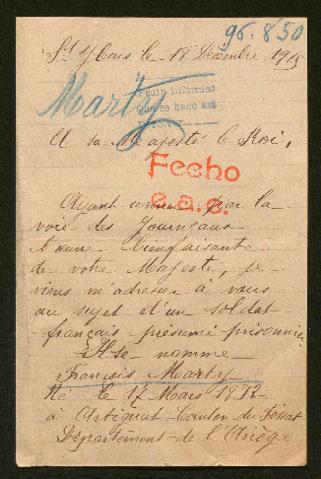 96.850
St Ybars le 18 Décembre 1915
Marty
A sa Majesté le Roi,
Fecho
e.a.e.
Ayant connu par la
voie des Journeaux
l'œuvre bienfaisante
de votre Majesté, je
viens m'adresser à vous
au sujet d'un soldat
français présumé prisonnier
Il se nomme
François Marty
Né le 17 Mars 1892
à Artigat Canton du Fossat
Département de l'Ariège